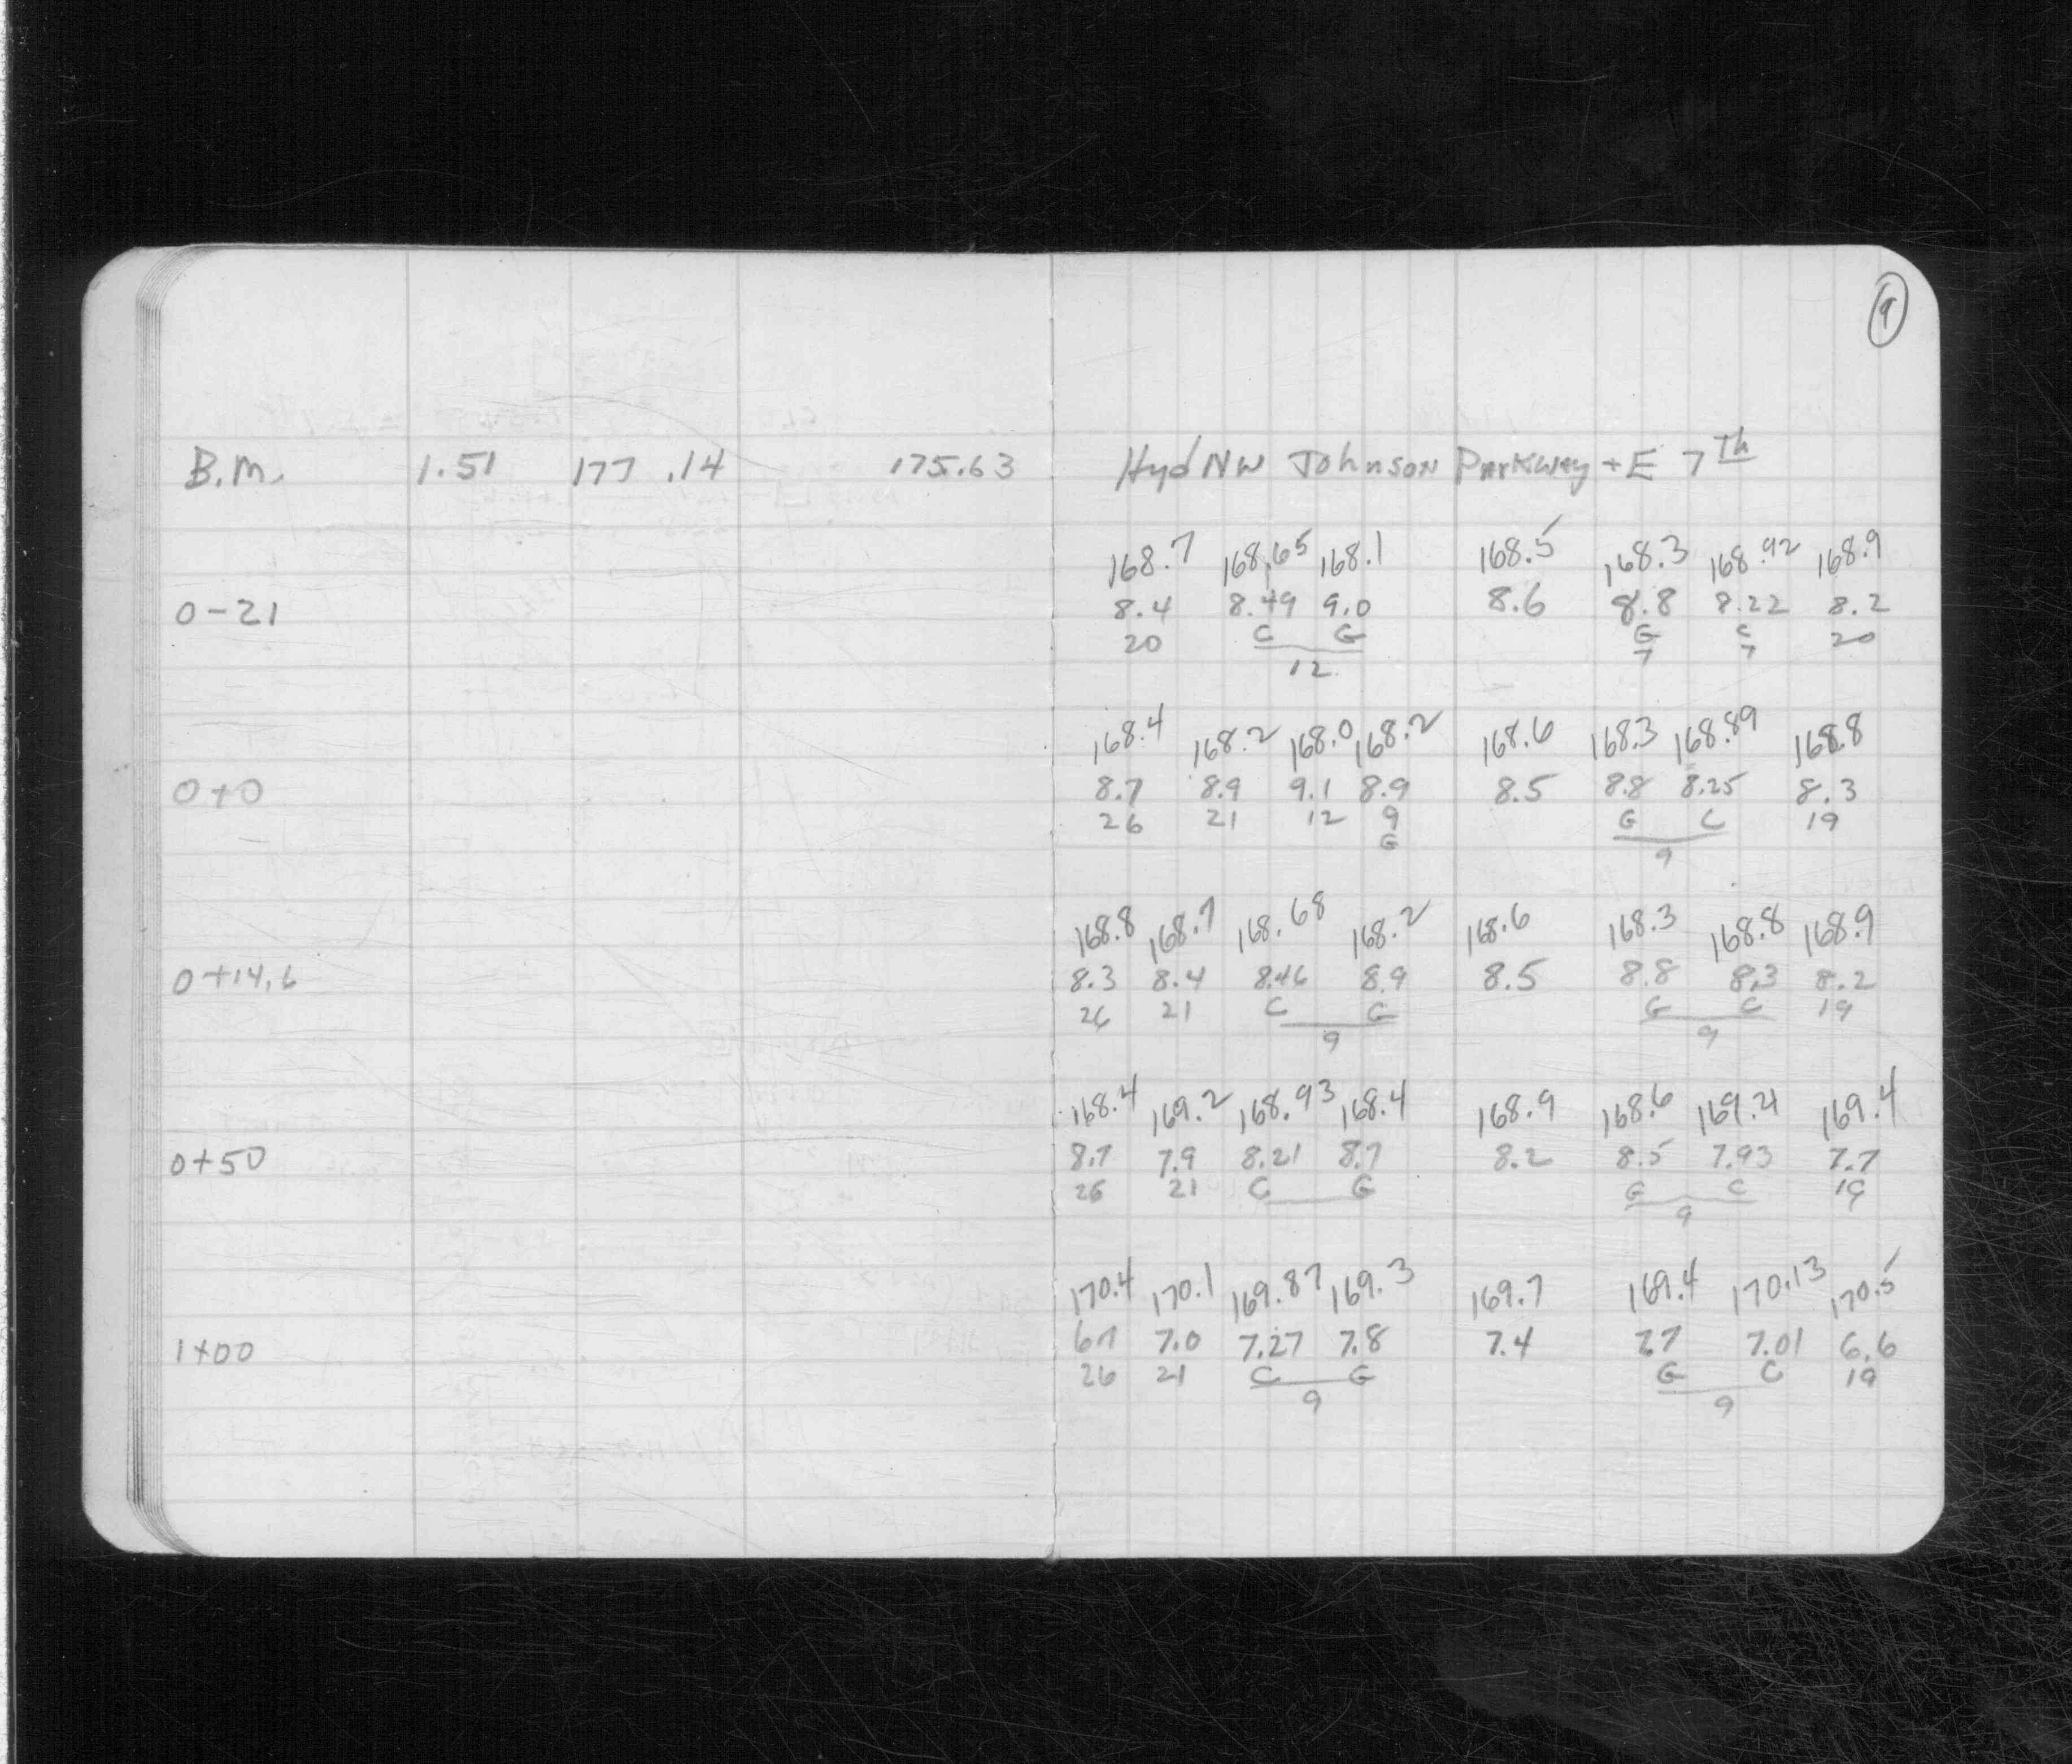 9
B.M. 1.51 177.14 175.63 Hyd NW Johnson Parkway + E 7th
168.7 168.65 168.1 168.5 168.3 168.92 168.9
0-21 8.4 8.49 9.0 8.6 8.8 8.22 8.2
20 C G G C 20
12 7 7
168.4 168.2 168.0 168.2 168.6 168.3 168.89 168.8
0+0 8.7 8.9 9.1 8.9 8.5 8.8 8.25 8.3
26 21 12 9 G C 19
G 9
168.8 168.7 168.68 168.2 168.6 168.3 168.8 168.9
0+14.6 8.3 8.4 8.46 8.9 8.5 8.8 8.3 8.2
26 21 C G G C 19
9 9
168.4 169.2 168.93 168.4 168.9 168.6 169.21 169.4
0+50 8.7 7.9 8.21 8.7 8.2 8.5 7.93 7.7
26 21 C G G C 19
9
170.4 170.1 169.87 169.3 169.7 169.4 170.13 170.5
1+00 6.7 7.0 7.27 7.8 7.4 7.7 7.01 6.6
26 21 C G G C 19
9 9